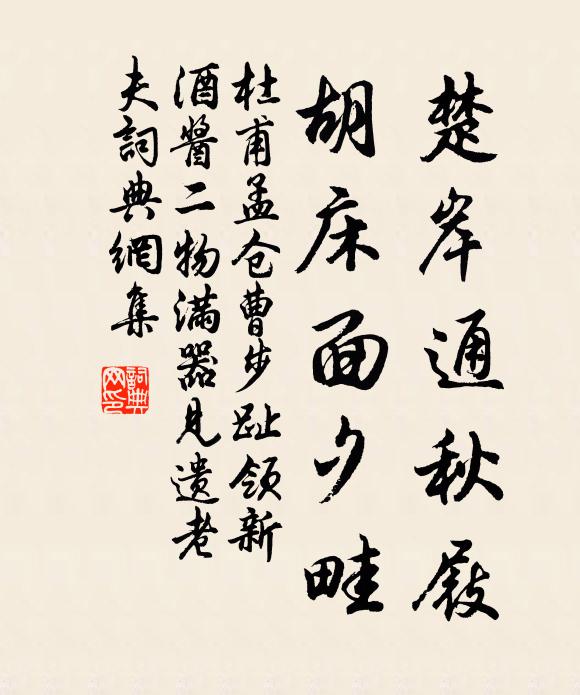 楚岸通秋屐
胡床面夕畦
杜甫孟仓曹步趾领新
酒酱二物满器见遗老
夫詞典網集
詞典網印